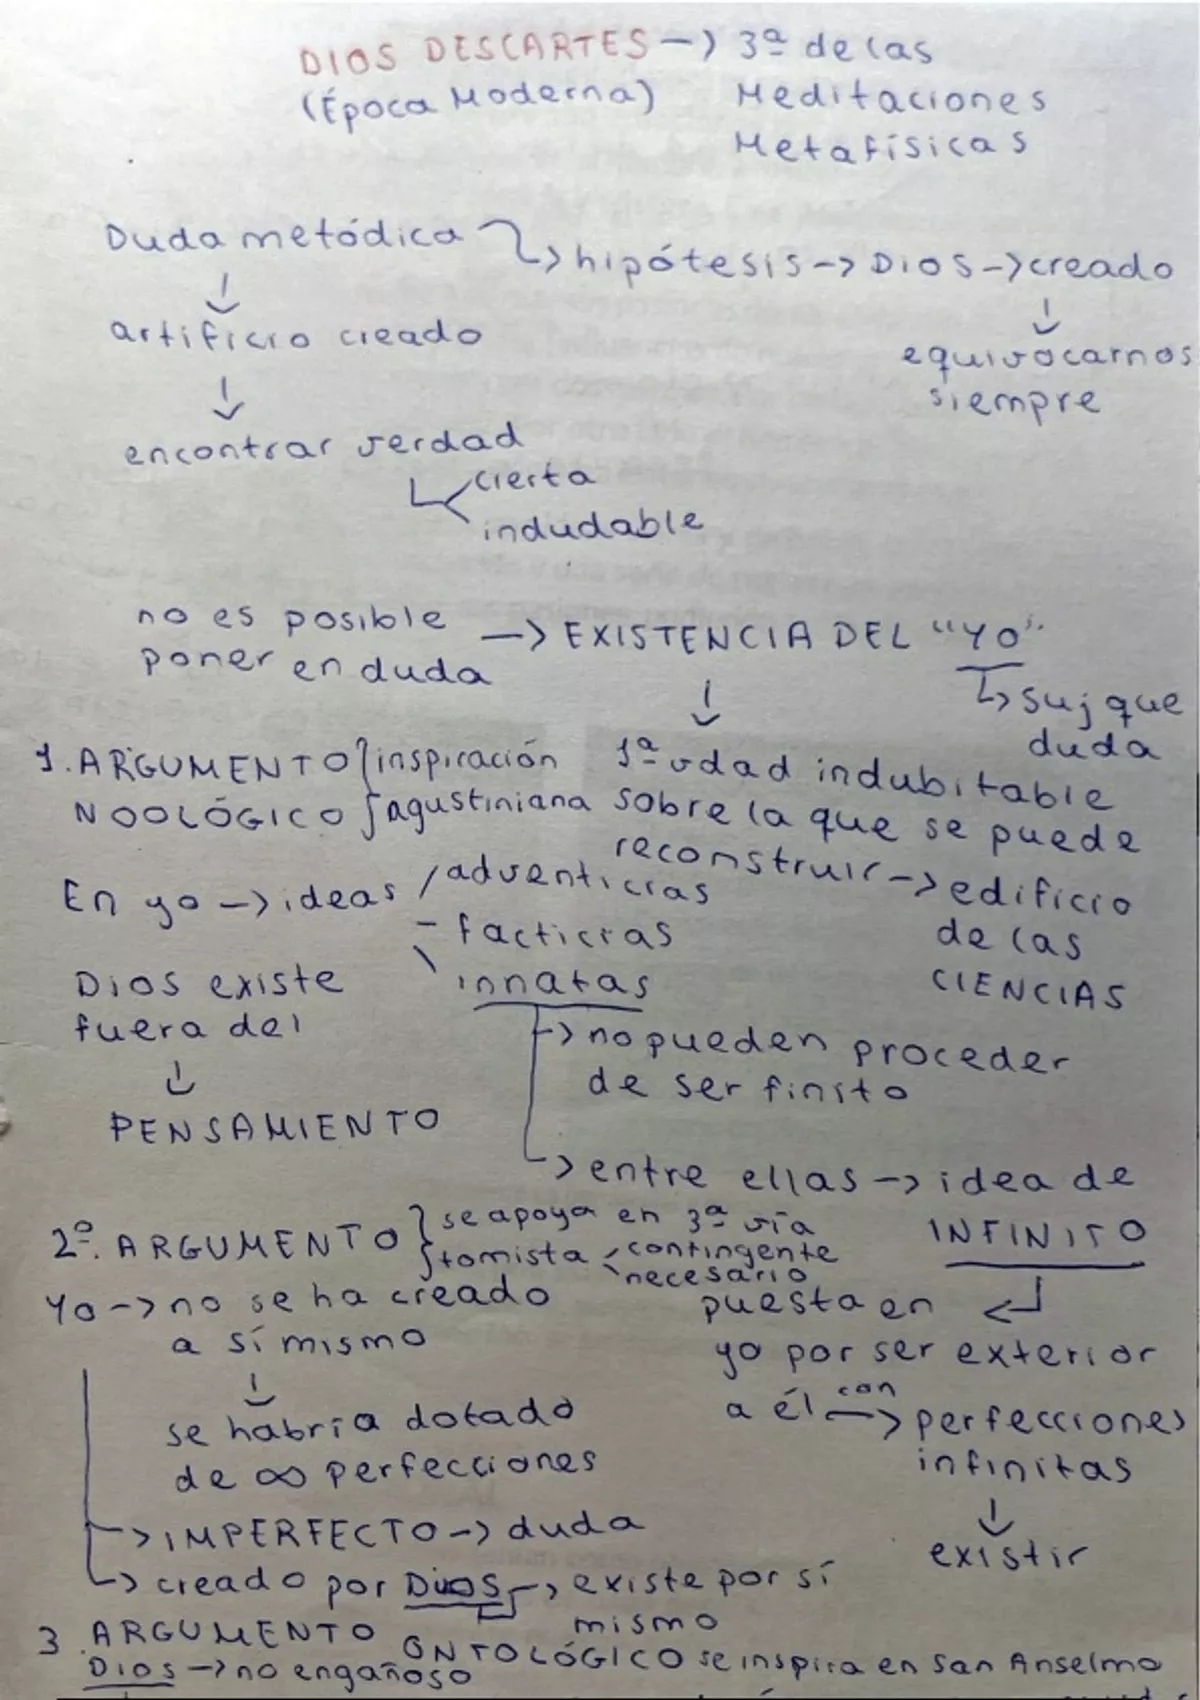 DIOS DESCARTES -> 3ª de las
(Época Moderna) Meditaciones
Metafísicas
Duda metódica -> hipótesis -> Dios -> creado
↓
↓
artificio creado
equivocarnos
siempre
↓
encontrar verdad
cierta
indudable
no es posible
poner en duda -> EXISTENCIA DEL "YO"
↓
↳ suj que
duda
1. ARGUMENTO
NOOLÓGICO
} inspiración
agustiniana
1ª vdad indubitable
sobre la que se puede
reconstruir -> edificio
de las
CIENCIAS
En yo -> ideas / adventicias
- facticias
\ innatas
Dios existe
fuera del
↓
PENSAMIENTO
-> no pueden proceder
de ser finito
-> entre ellas -> idea de
INFINITO
2º. ARGUMENTO } se apoya en 3ª vía
tomista
contingente
necesario
puesta en
yo por ser exterior
a él con -> perfecciones
infinitas
↓
existir
Yo -> no se ha creado
a sí mismo
↓
se habría dotado
de ∞ perfecciones
-> IMPERFECTO -> duda
-> creado por Dios -> existe por sí
mismo
3. ARGUMENTO ONTOLÓGICO se inspira en San Anselmo
Dios -> no engañoso